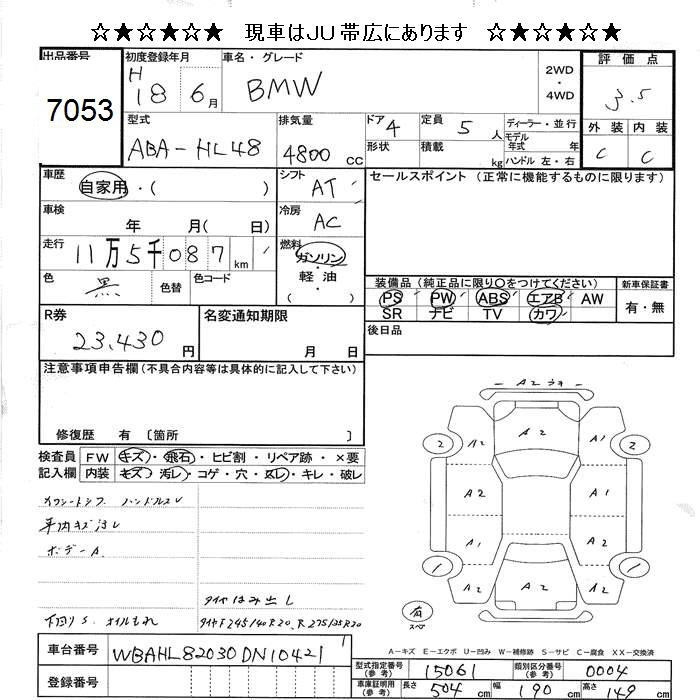 ☆★☆★☆★ 現車はJU帯広にあります ☆★☆★☆★
出品番号
7053
初度登録年月
H 18 6月
車名・グレード
BMW
2WD
・
4WD
評価点
3.5
型式
ABA-HL48
排気量
4800 cc
ドア 4
形状
定員 5 人
積載 kg
ディーラー・並行
モデル年式 年
ハンドル 左・右
外装 内装
C C
車歴
自家用・( )
シフト AT
セールスポイント (正常に機能するものに限ります)
車検
年 月( 日)
冷房 AC
走行
11万5千087km
燃料
ガソリン・
軽油・
( )
色 黒
色替
色コード
装備品 (純正品に限り○をつけてください)
PS PW ABS エアB AW
SR ナビ TV カワ
新車保証書
有・無
R券
23,430 円
名変通知期限
月 日
後日品
注意事項申告欄 (不具合内容等は具体的に記入して下さい)
修復歴 有 〔箇所 〕
検査員
記入欄
FW キズ・飛石・ヒビ割・リペア跡・×要
内装 キズ・汚レ・コゲ・穴・スレ・キレ・破レ
ハンドルスレ
車内キズ汚レ
ボデーA
タイヤはみ出し
下回りS、オイルもれ
タイヤF245/40R20、R275/35R20
A2
A2
A2
A1
2
2
A2
A1
A2
A2
1
1
A2
A2
A2
A2
有
スペア
A-キズ E-エクボ U-凹み W-補修跡 S-サビ C-腐食 XX-交換済
車台番号
WBAHL82030DN10421
登録番号
型式指定番号
(参考)
15061
類別区分番号
(参考)
0004
車庫証明用
(参考)
長さ 504 cm 幅 190 cm 高さ 149 cm